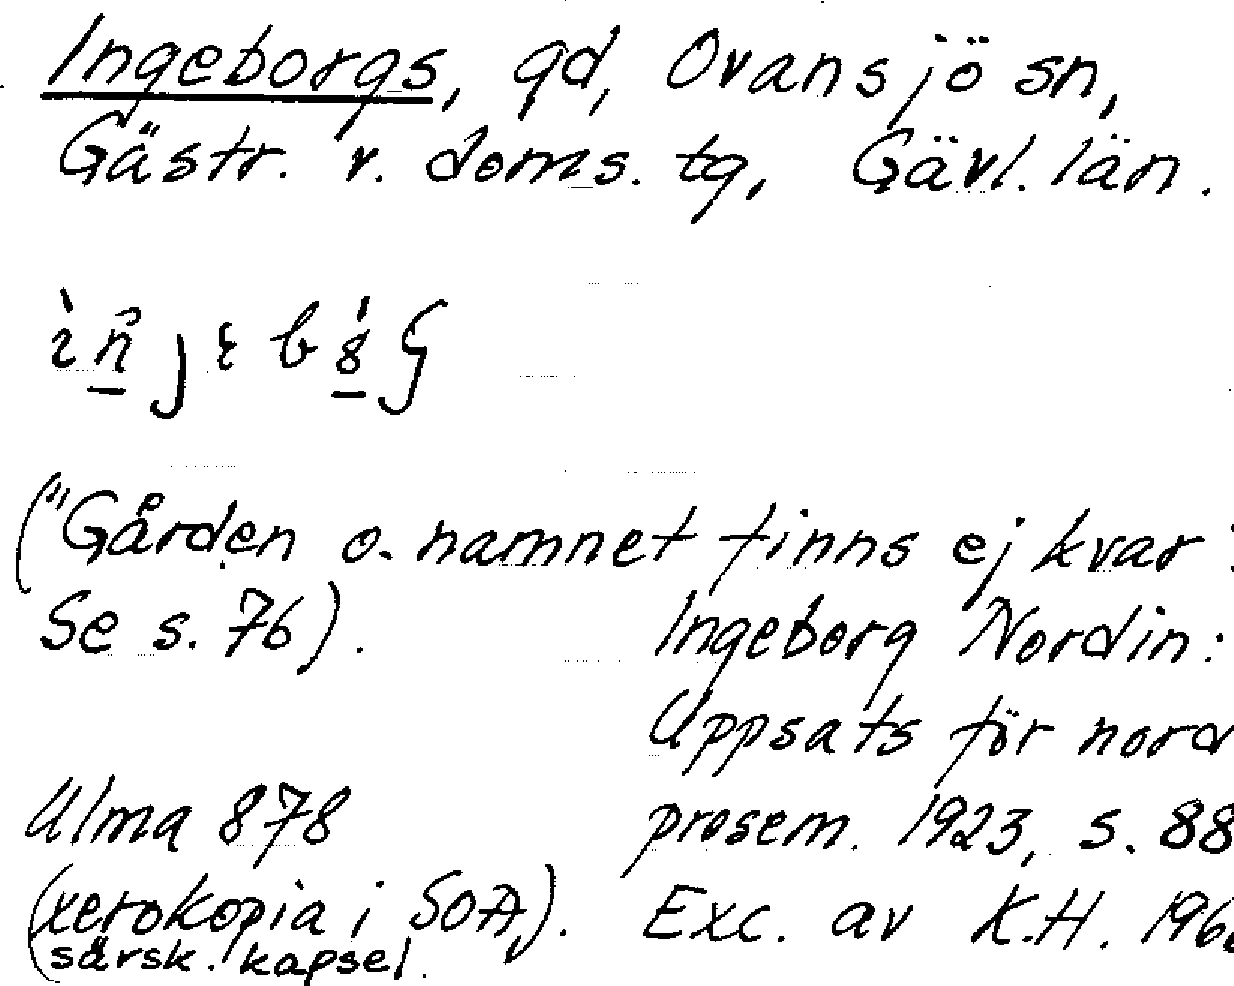 Ingeborgs, gd, Ovansjö sn,
Gästr. v. doms. tg, Gävl. län.
("Gården o. namnet finns ej kvar
Se s. 76).
Ingeborg Nordin:
Uppsats för nord
Ulma 878
prosem. 1923, s. 88
(xerokopia i SOA,).
Exc. av K.H.
(särsk. kapsel.